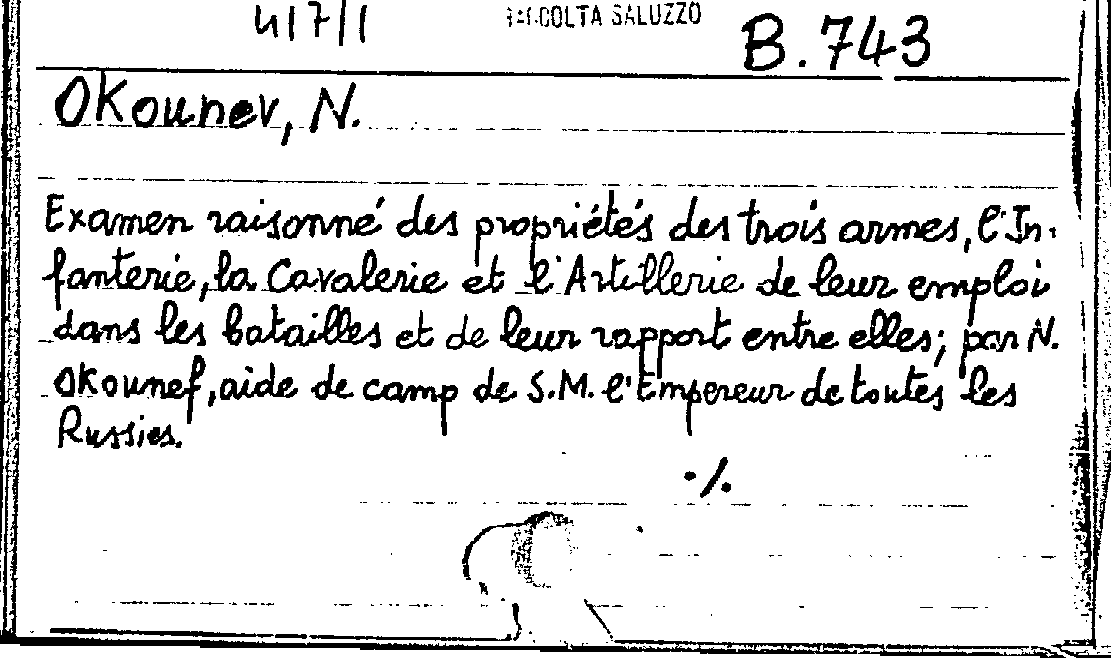 417/1 RACCOLTA SALUZZO B.743
Okounev, N.
Examen raisonné des propriétés des trois armes, l'In-
fanterie, la Cavalerie et l'Artillerie de leur emploi
dans les batailles et de leur rapport entre elles; par N.
Okounef, aide de camp de S.M. l'Empereur de toutes les
Russies.
./.